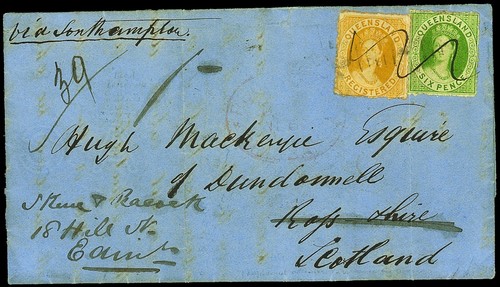 via Southampton.
QUEENSLAND
REGISTERED
QUEENSLAND
SIX PENCE
39
1/-
Hugh Mackenzie Esquire
of Dundonnell
Ross shire
Scotland
Skene & Peacock
18 Hill St.
Edinr